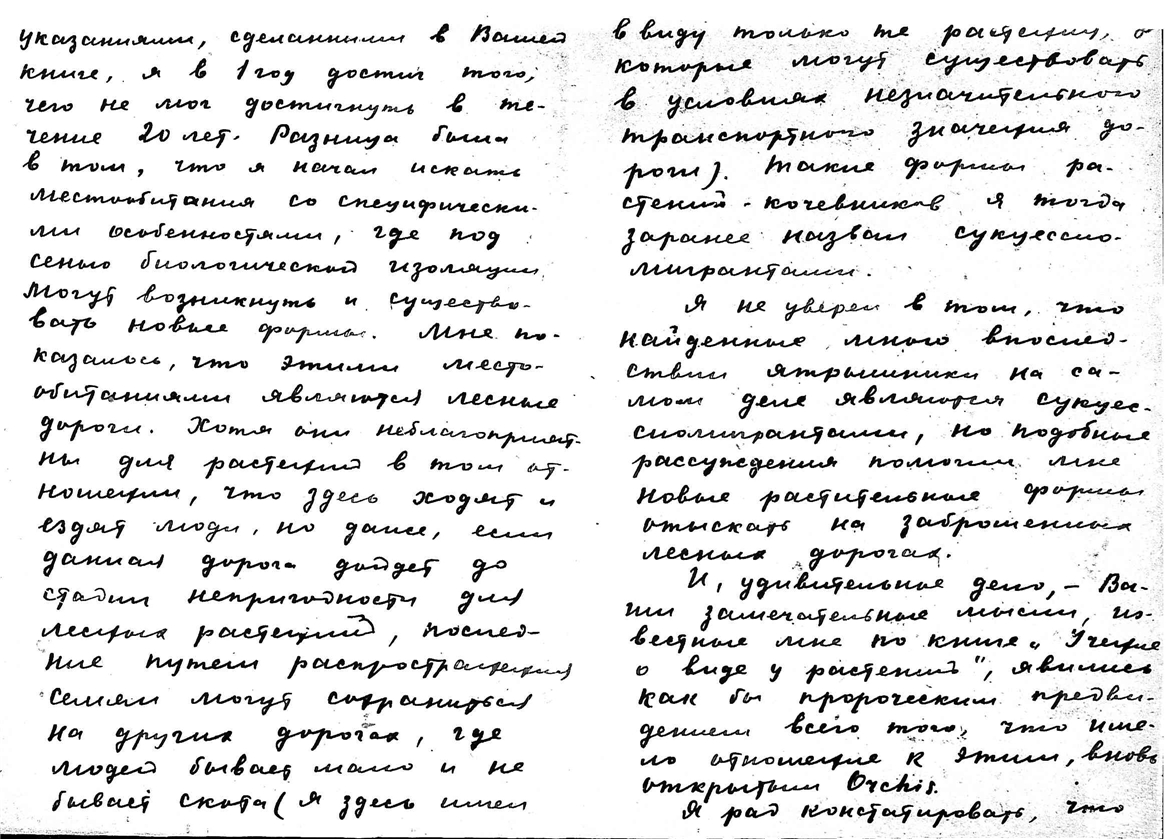 указаниями, сделанными в Вашей
книге, я в 1 год достиг того,
чего не мог достигнуть в те-
чение 20 лет. Разница была
в том, что я начал искать
местообитания со специфически-
ми особенностями, где под
сенью биологической изоляции
могут возникнуть и существо-
вать новые формы. Мне по-
казалось, что этими место-
обитаниями являются лесные
дороги. Хотя они неблагоприят-
ны для растений в том от-
ношении, что здесь ходят и
ездят люди, но даже, если
данная дорога дойдет до
стадии непригодности для
лесных растений, послед-
ние путем распространения
семян могут сохраниться
на других дорогах, где
людей бывает мало и не
бывает скота (я здесь имел
в виду только те растения,
которые могут существовать
в условиях незначительного
транспортного значения до-
роги). Такие формы ра-
стений-кочевников я тогда
заранее назвал сукцессио-
мигрантами.
Я не уверен в том, что
найденные мною впослед-
ствии ятрышники на са-
мом деле являются сукцес-
сиомигрантами, но подобные
рассуждения помогли мне
новые растительные формы
отыскать на заброшенных
лесных дорогах.
И, удивительное дело, – Ва-
ши замечательные мысли, из-
вестные мне по книге „Учение
о виде у растений", явились
как бы пророческим предви-
дением всего того, что име-
ло отношение к этим, вновь
открытым Orchis.
Я рад констатировать, что